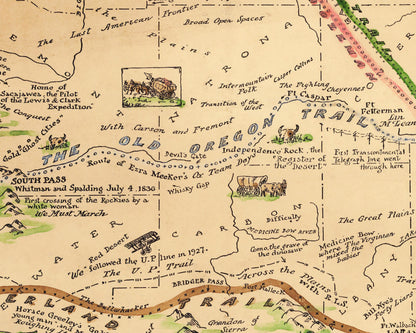 The Last American Frontier
Broad Open Spaces
the Plains
NATRONA
TRAIL
Home of
Sacajawea, the Pilot
of the Lewis & Clark
Expedition
Intermountain
Folk
Casper Collins
The Fighting
Cheyennes
Transition of the
West
Ft Caspar
Ft
Fetterman
With Carson and Fremont
THE OLD OREGON TRAIL
Gold Ghost Cities
Conquest
Devil's Gate
Independence Rock, the
"Register of
the Desert"
First Transcontinental
Telegraph line went
through here
Route of Ezra Meeker's Ox Team Days
SOUTH PASS
Whitman and Spalding July 4, 1836
First crossing of the Rockies by a
white woman
We Must March
Whisky Gap
Difficulty
MEDICINE BOW RIVER
Como, the grave of
the dinosaur
The Great Plains
Medicine Bow
where The Virginian
mixed the
babies
CARBON
ALBANY
Red Desert
We followed the U.P. line in 1927.
The U.P. Trail
BRIDGER PASS
Fort Halleck
Across the Plains with R.L.S.
OVERLAND TRAIL
Horace Greeley's
Grandon of
Sierra
Bill Nye's